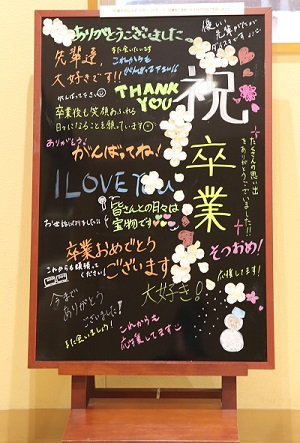 ありがとうございました
先輩達、
大好きです!!
また会いたいです
これからも
がんばって下さい
がんばって下さい
THANK
YOU
祝
卒業
卒業後も笑顔あふれる
日々になることを願っています
たくさんの思い出
をありがとうございました!!
ありがとう
がんばってね!
I LOVE YOU
皆さんとの日々は
宝物です
お世話になりました
卒業おめでとう
ございます
そつおめ!
これからも頑張って
ください
応援してます!
大好き!
今まで
ありがとう
ございました!
また会いましょう!
これからも
応援してます